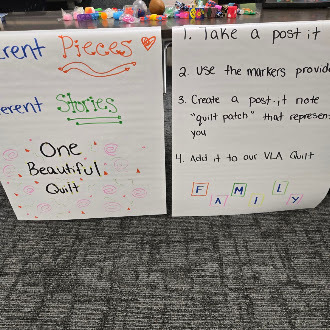 erent Pieces
erent Stories
One
Beautiful
Quilt
1. Take a post it
2. Use the markers provide
3. Create a post-it note
"quilt patch" that represen
you
4. Add it to our VLA Quilt
F A M I L Y